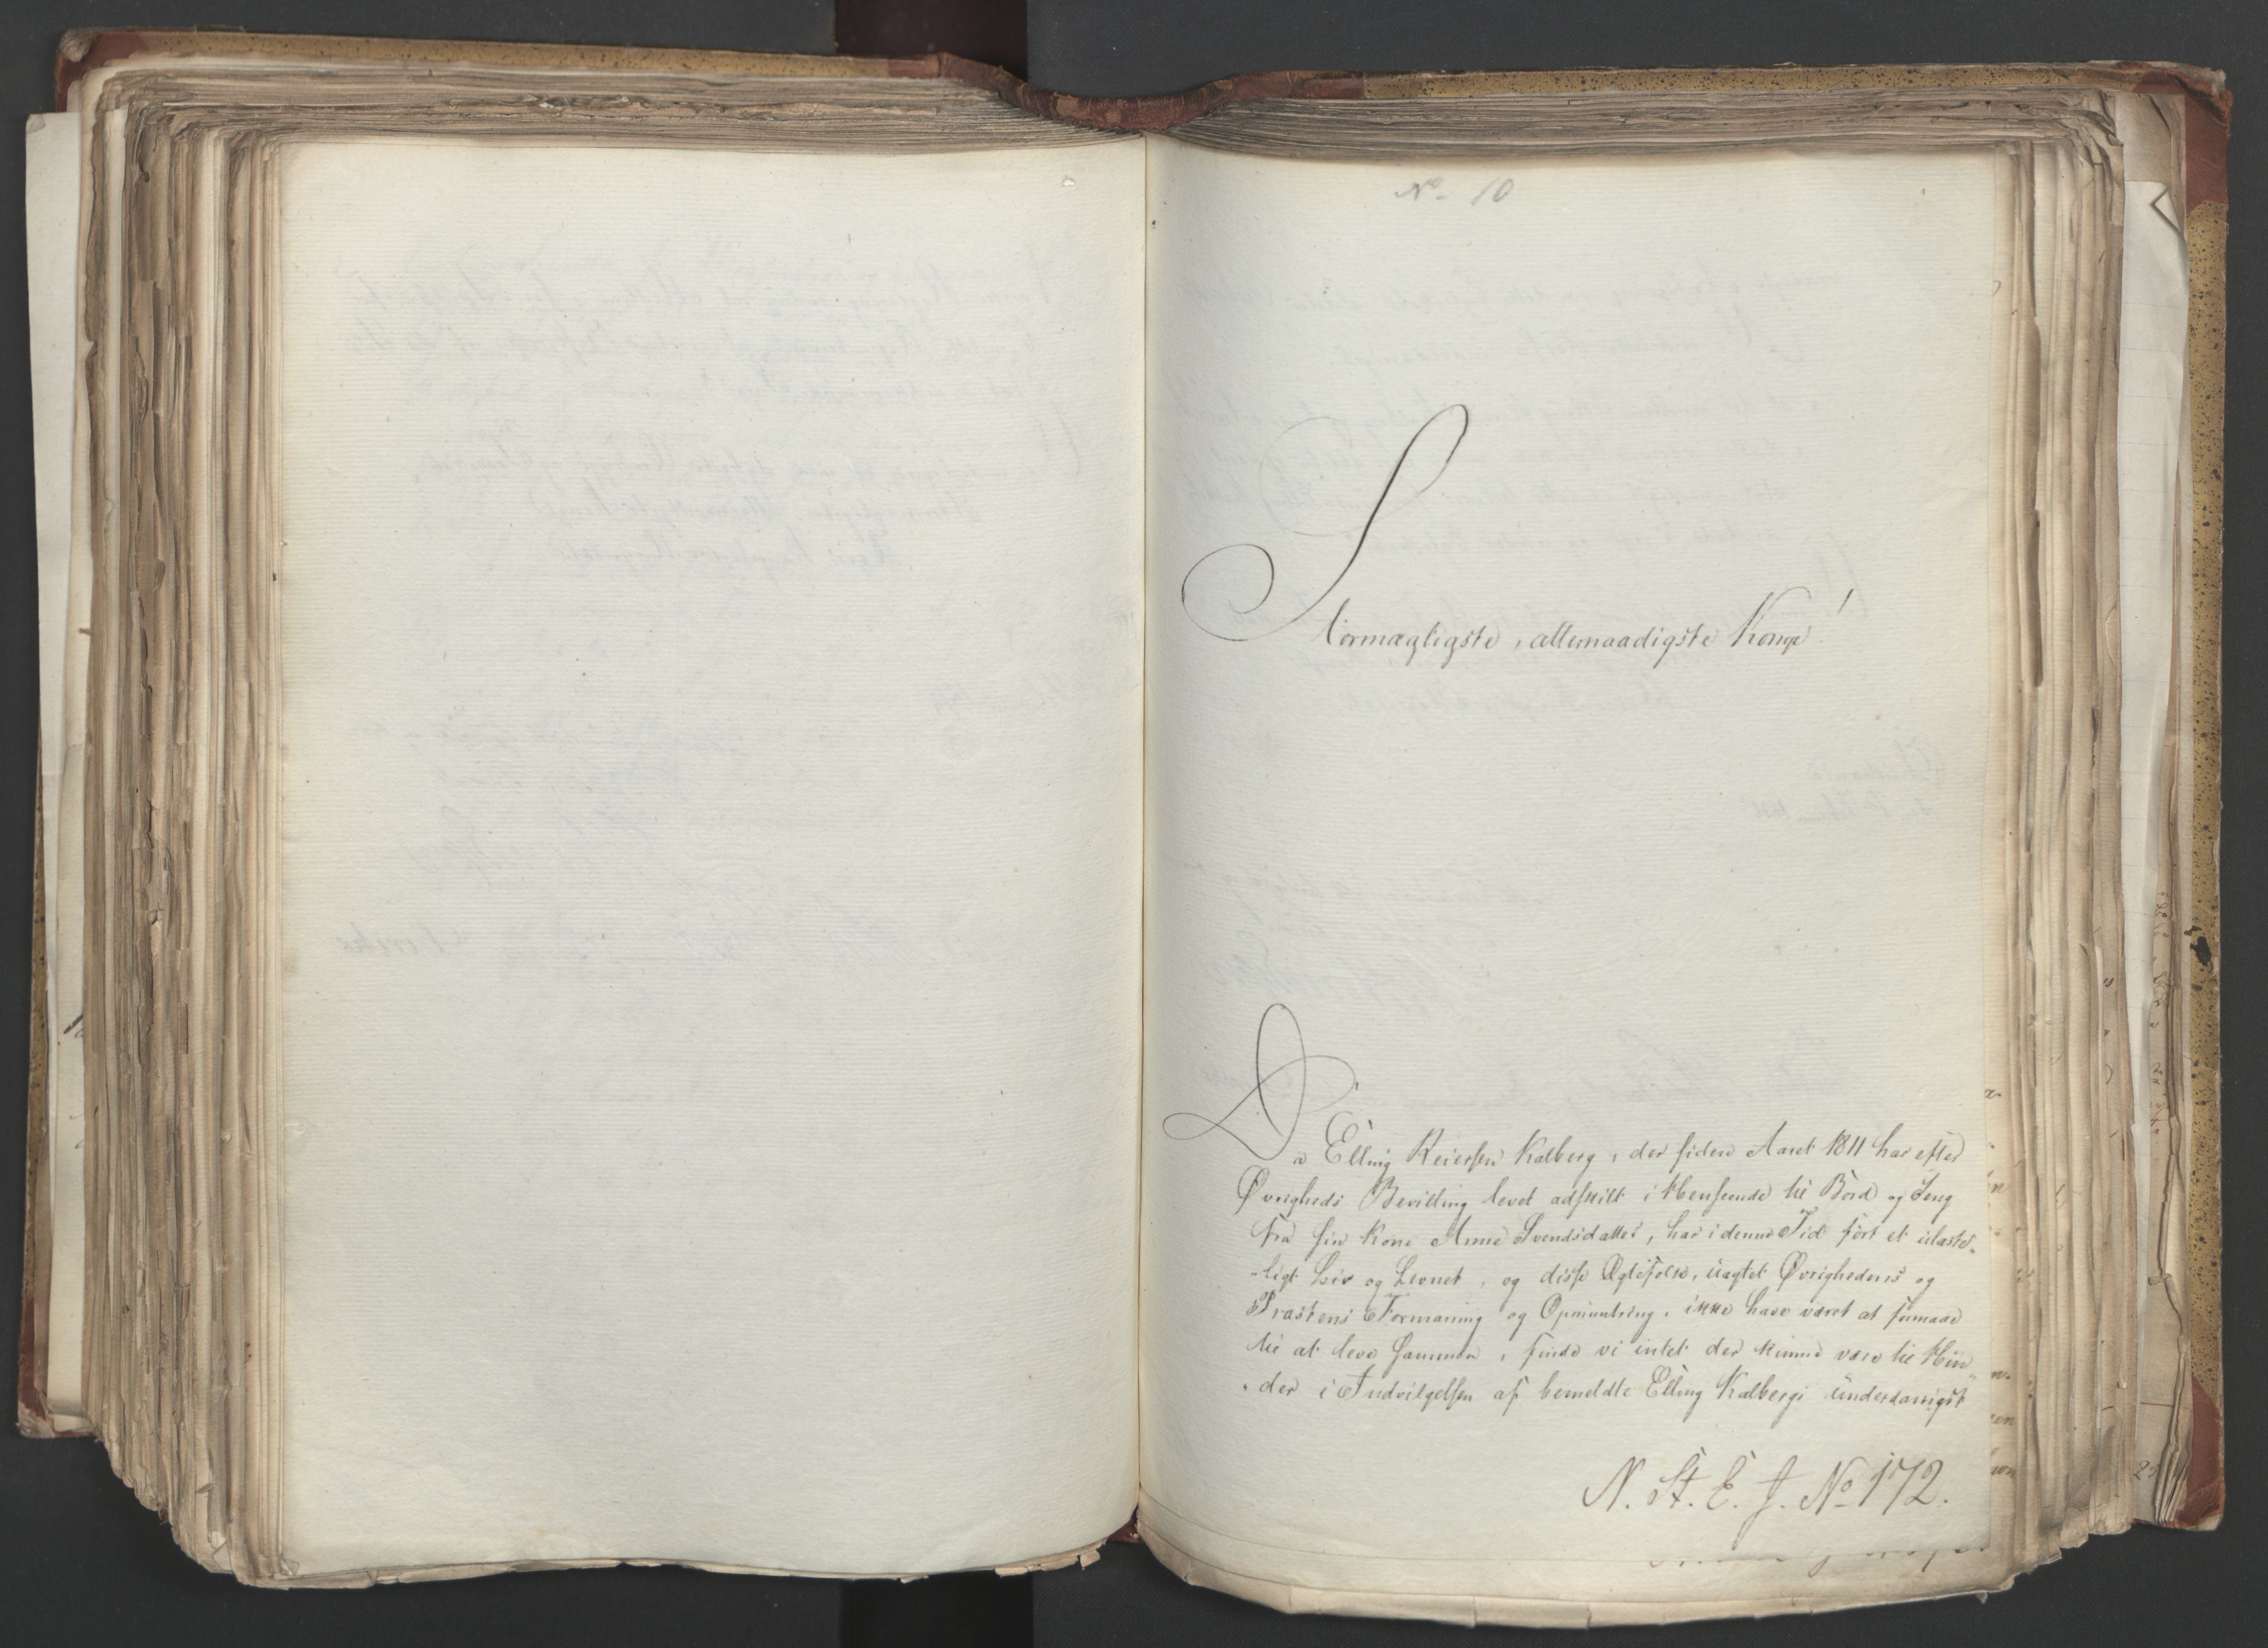 No 10
Stormægtigste, allernaadigste Konge!
Da Elling Reiersen Kalberg, der siden Aaret 1811 har efter
Øvrigheds Bevilling levet adskilt i Henseende til Bord og Seng
fra sin Kone Anne Svendsdatter, har i denne Tid ført et ulaste-
-ligt Liv og Levnet, og disse Ægtefolk, uagtet Øvrighedens og
Præstens Formaning og Opmuntring, ikke have været at formaae
til at leve sammen, finde vi intet der kunne være til Hin-
-der i Indvilgelsen af bemeldte Elling Kalbergs underdanigst
N. St. E. J. No 172.